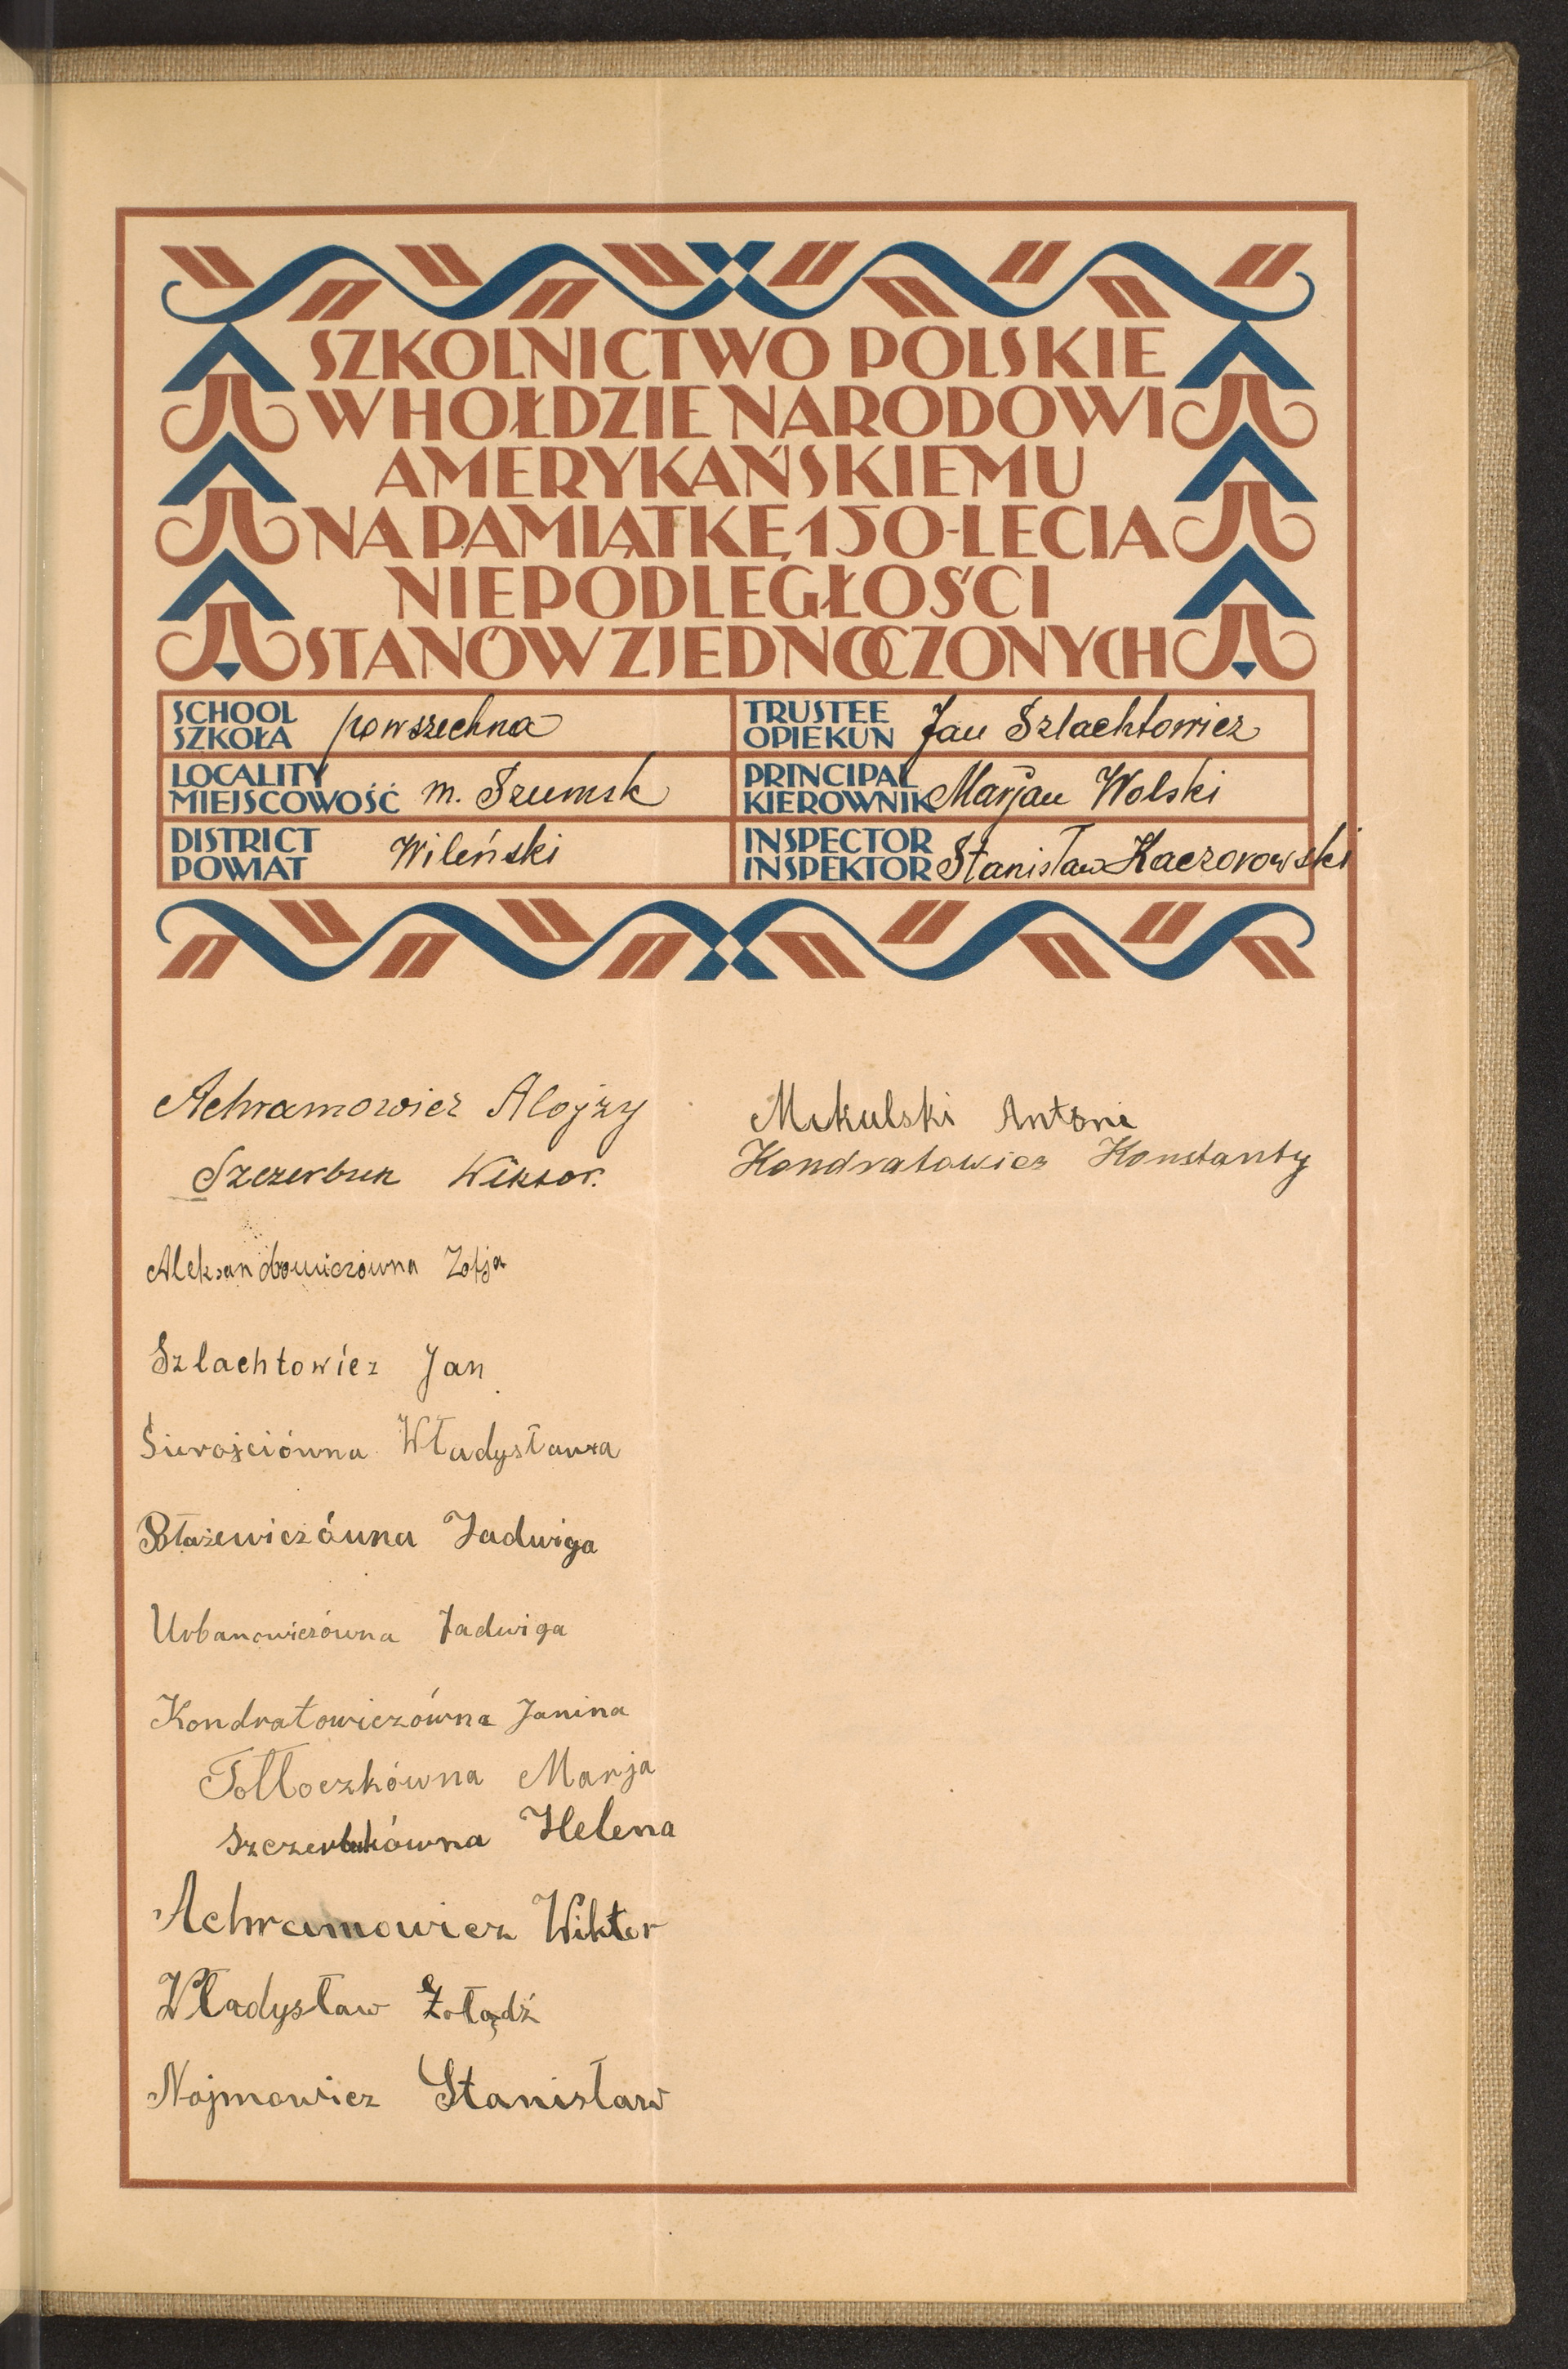 SZKOLNICTWO POLSKIE
W HOŁDZIE NARODOWI
AMERYKAŃSKIEMU
NA PAMIĄTKĘ 150-LECIA
NIEPODLEGŁOŚCI
STANÓW ZJEDNOCZONYCH
SCHOOL
SZKOŁA powszechna
TRUSTEE
OPIEKUN Jan Szlachtowicz
LOCALITY
MIEJSCOWOŚĆ m. Szumsk
PRINCIPAL
KIEROWNIK Marjan Wolski
DISTRICT
POWIAT Wileński
INSPECTOR
INSPEKTOR Stanisław Kaczorowski
Achramowicz Alojzy
Szczerbuk Wiktor.
Aleksandrowiczówna Zofja
Szlachtowicz Jan
Sierojciówna Władysława
Błażewiczówna Jadwiga
Urbanowiczówna Jadwiga
Kondratowiczówna Janina
Tołłoczkówna Marja
Szczerbukówna Helena
Achramowicz Wiktor
Władysław Żołądź
Najmowicz Stanisław
Mikulski Antoni
Kondratowicz Konstanty